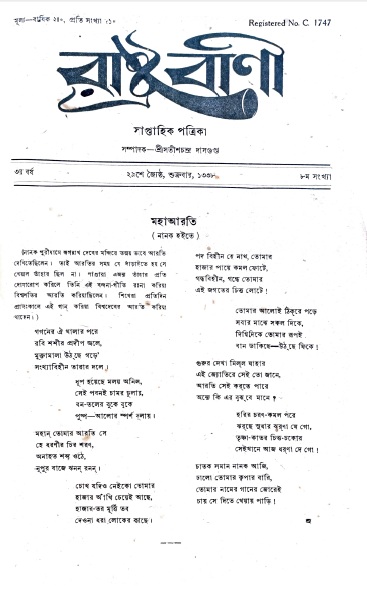 মূল্য—বার্ষিক ২৷০, প্রতি সংখ্যা ৴১০
Registered No. C. 1747
রাষ্ট্রবাণী
সাপ্তাহিক পত্রিকা
সম্পাদক—শ্রীসতীশচন্দ্র দাসগুপ্ত
৩য় বর্ষ
২৯শে জ্যৈষ্ঠ, শুক্রবার, ১৩৩৮
৮ম সংখ্যা
মহাআরতি
( নানক হইতে )
(নানক পুরীধামে জগন্নাথ দেবের মন্দিরে তন্ময় ভাবে আরতি
দেখিতেছিলেন। তাই আরতির সময় যে দাঁড়াইতে হয় সে
খেয়াল তাঁহার ছিল না। পাণ্ডারা এজন্য তাঁহার প্রতি
দোষারোপ করিলে তিনি এই বন্দনা-গীতি রচনা করিয়া
বিশ্বপতির আরতি করিয়াছিলেন। শিখেরা প্রতিদিন
প্রাতঃকালে এই গান করিয়া বিশ্বদেবের আরতি করিয়া
থাকেন।)
গগনের ঐ থালার পরে
রবি শশীর প্রদীপ জলে,
মুক্তামালা উঠ্‌ছে গড়ে'
সংখ্যাবিহীন তারার দলে।
ধূপ হয়েছে মলয় অনিল,
সেই পবনই চামর চুলায়,
বন-তলের বুকে বুকে
পুষ্প—আলোর স্পর্শ বুলায়।
মহান্ তোমার আরতি সে
হে ধরণীর চির শরণ,
অনাহত শব্দ ওঠে,
নূপুর বাজে ঝনন্ রনন্।
চোখ যদিও নেইকো তোমার
হাজার আঁখি চেয়েই আছে,
হাজার-তর মূর্ত্তি তব
দেওনা ধরা লোকের কাছে।
পদ বিহীন হে নাথ, তোমার
হাজার পায়ে কমল ফোটে,
গন্ধবিহীন, গন্ধে তোমার
এই জগতের চিত্ত লোটে!
তোমার আলোই ঠিক্‌রে পড়ে
সবার মাঝে সকল দিকে,
দিগ্বিদিকে তোমার রূপই
বান ডাকিছে—উঠ্‌ছে ফিকে!
গুরুর দেখা মিল্‌ল যাহার
এই জ্যোতিরে সেই তো জানে,
আরতি সেই কর্‌তে পারে
অন্যে কি এর বুঝ্‌বে মানে?
হরির চরণ-কমল পরে
ঝর্‌ছে সুধার ঝরণা যে গো,
তৃষ্ণা-কাতর চিত্ত-চকোর
সেইখানে আজ ধর্‌ণা দে গো!
চাতক সমান নানক আজি,
ঢালো তোমার কৃপার বারি,
তোমার নামের গানের জোরেই
চায় সে দিতে খেয়ায় পাড়ি!